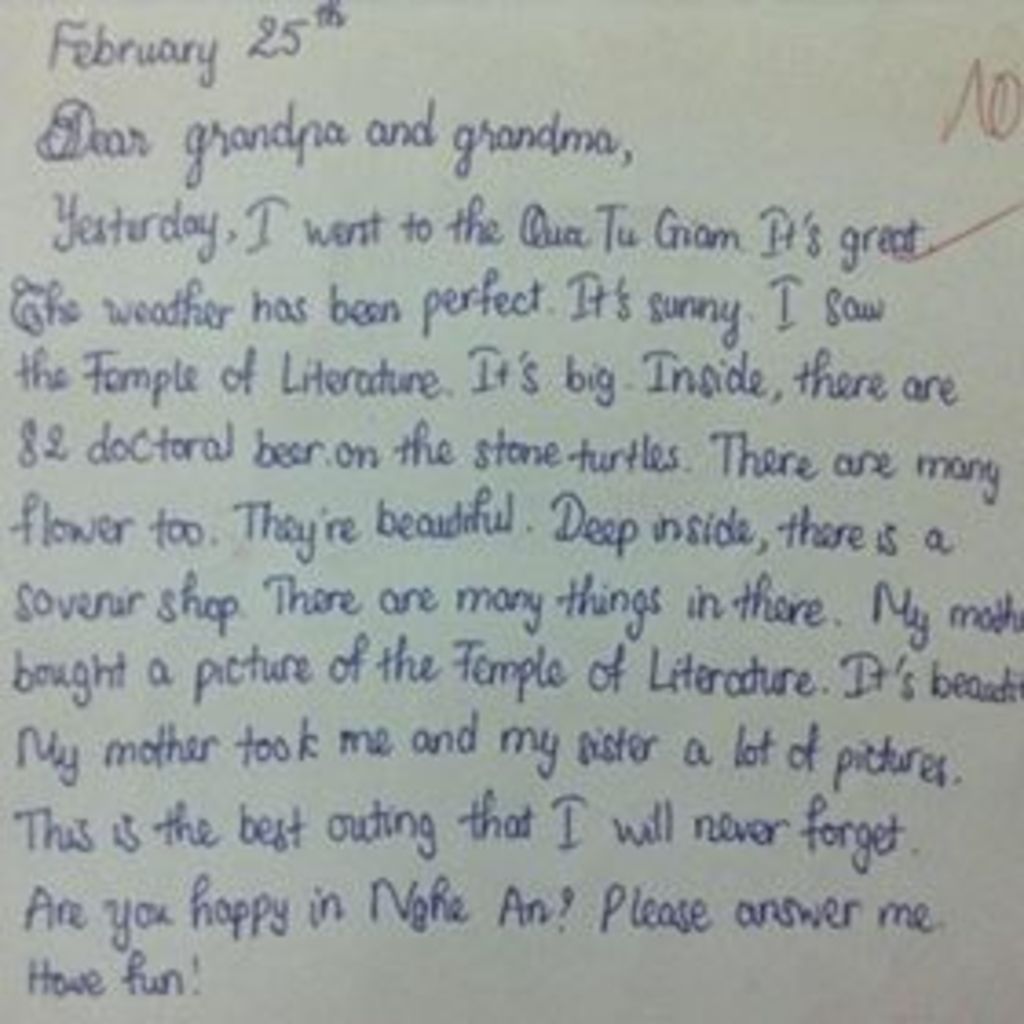 February 25th
10
Dear grandpa and grandma,
Yesterday, I went to the Qua Tu Giam. It's great.
The weather has been perfect. It's sunny. I saw
the Temple of Literature. It's big. Inside, there are
82 doctoral beer on the stone turtles. There are many
flower too. They're beautiful. Deep inside, there is a
sovenir shop. There are many things in there. My moth
bought a picture of the Temple of Literature. It's beauti
My mother took me and my sister a lot of pictures.
This is the best outing that I will never forget.
Are you happy in Nghe An? Please answer me.
Have fun!